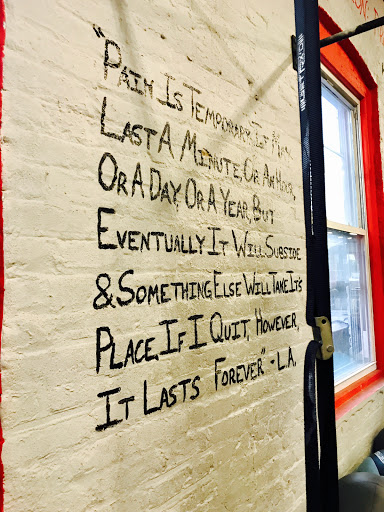 "Pain Is Temporary. It May
Last A Minute, Or An Hour,
Or A Day, Or A Year, But
Eventually It Will Subside
& Something Else Will Take It's
Place. If I Quit, However,
It Lasts Forever." -L.A.